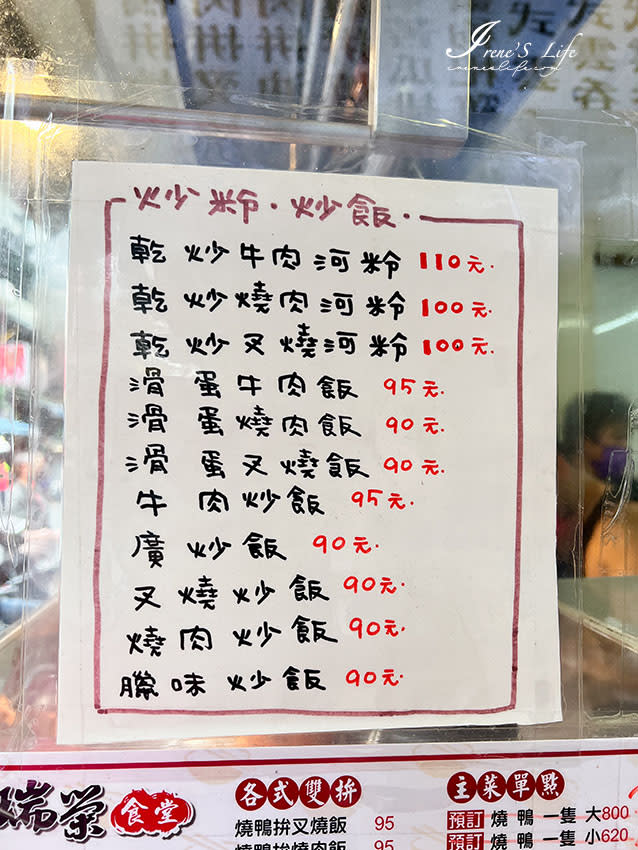 Irene's Life
ireneslife.com
炒粉·炒飯·
乾炒牛肉河粉 110元.
乾炒燒肉河粉 100元.
乾炒叉燒河粉 100元.
滑蛋牛肉飯 95元.
滑蛋燒肉飯 90元.
滑蛋叉燒飯 90元.
牛肉炒飯 95元.
廣炒飯 90元.
叉燒炒飯 90元.
燒肉炒飯 90元.
臘味炒飯 90元.
瑞榮食堂
各式雙拚
燒鴨拚叉燒飯 95
燒鴨拚燒肉飯 95
主菜單點
預訂 燒鴨一隻 大800
預訂 燒鴨一隻 小620